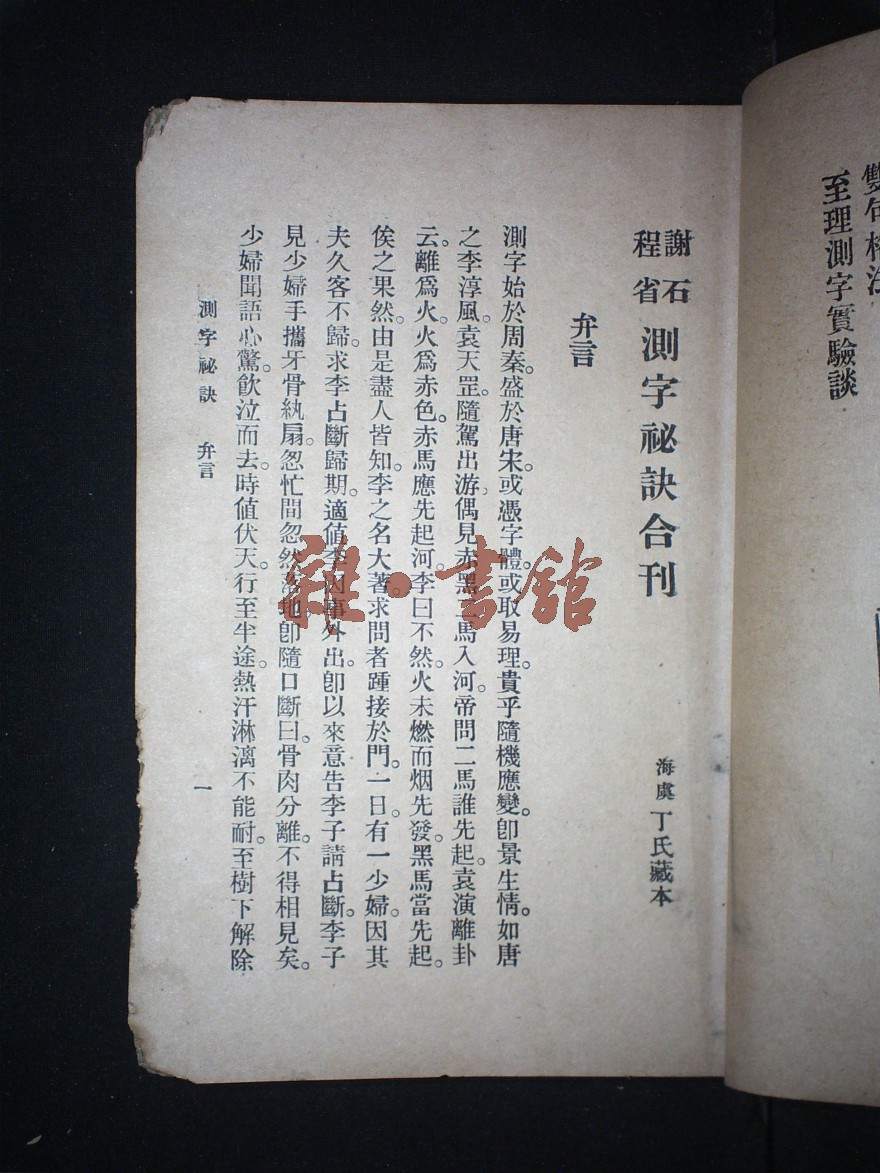 雙句格法
至理測字實驗談
謝石
程省
測字祕訣合刊
海虞丁氏藏本
弁言
測字始於周秦。盛於唐宋。或憑字體。或取易理。貴乎隨機應變。卽景生情。如唐
之李淳風。袁天罡。隨駕出游。偶見赤黑二馬入河。帝問二馬誰先起。袁演離卦
云。離爲火。火爲赤色。赤馬應先起河。李曰不然。火未燃而烟先發。黑馬當先起。
俟之果然。由是盡人皆知。李之名大著。求問者踵接於門。一日。有一少婦。因其
夫久客不歸。求李占斷歸期。適値李因事外出。卽以來意告李子。請占斷。李子
見少婦手攜牙骨紈扇。怱忙間忽然落地。卽隨口斷曰。骨肉分離。不得相見矣。
少婦聞語心驚。飮泣而去。時値伏天。行至半途。熱汗淋漓不能耐。至樹下解除
測字祕訣 弁言
一
雜·書舘